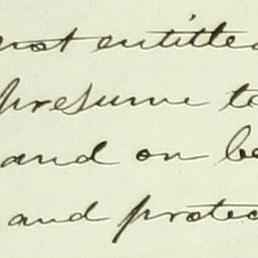 most entitled
presume to
and on be
and protec